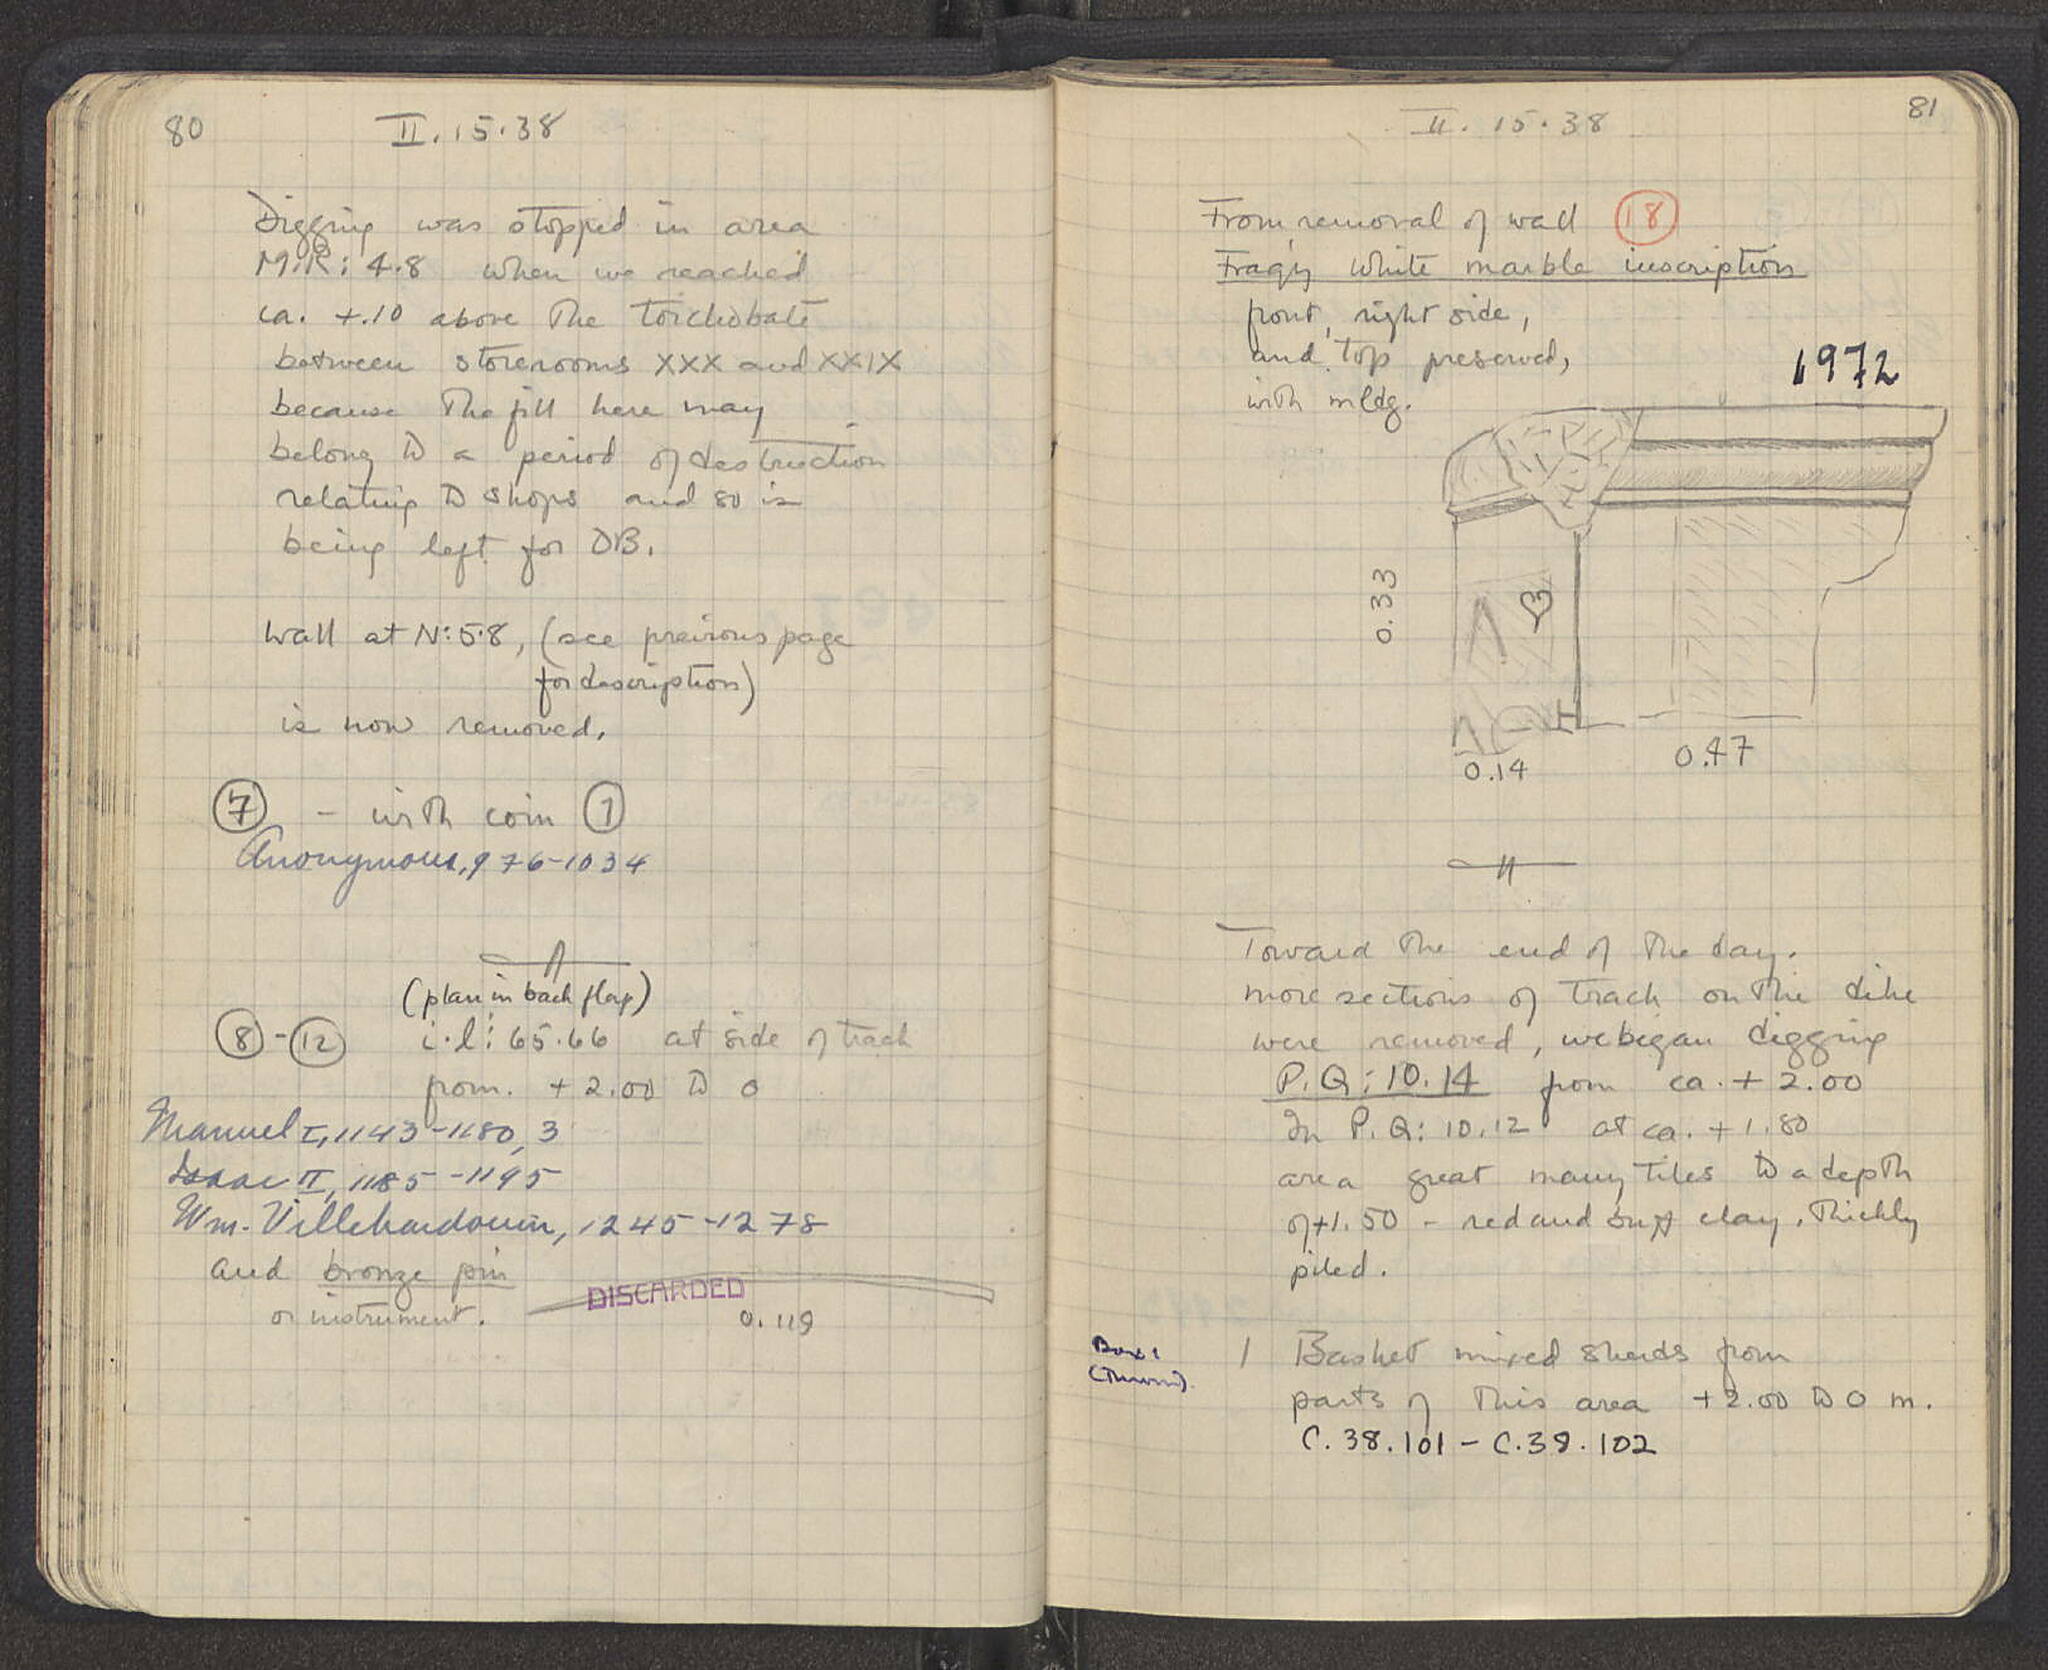 80
II.15.38
Digging was stopped in area
M.R: 4.8 when we reached
ca. +.10 above the toichobate
between storerooms XXX and XXIX
because the fill here may
belong to a period of destruction
relating to shops and so is
being left for DB.
Wall at N:5.8, (see previous page
for description)
is now removed.
7 - with coin 1
Anonymous, 976-1034
(plan in back flap)
8 - 12 i.l: 65.66 at side of track
from. +2.00 to 0
Manuel I, 1143-1180, 3
Isaac II, 1185-1195
Wm. Villehardouin, 1245-1278
and bronze pin
or instrument.
DISCARDED
0.119
81
II. 15.38
From removal of wall 18
Frag. white marble inscription
front, right side,
and top preserved,
with mldg.
1972
0.33
0.14
0.47
Toward the end of the day.
more sections of track on the dike
were removed, we began digging
P.Q: 10.14 from ca. +2.00
In P.Q: 10.12 at ca. +1.80
are a great many tiles to a depth
of +1.50 - red and buff clay, thickly
piled.
Box 1
1 Basket mixed sherds from
parts of this area +2.00 to 0 m.
C.38.101 - C.38.102